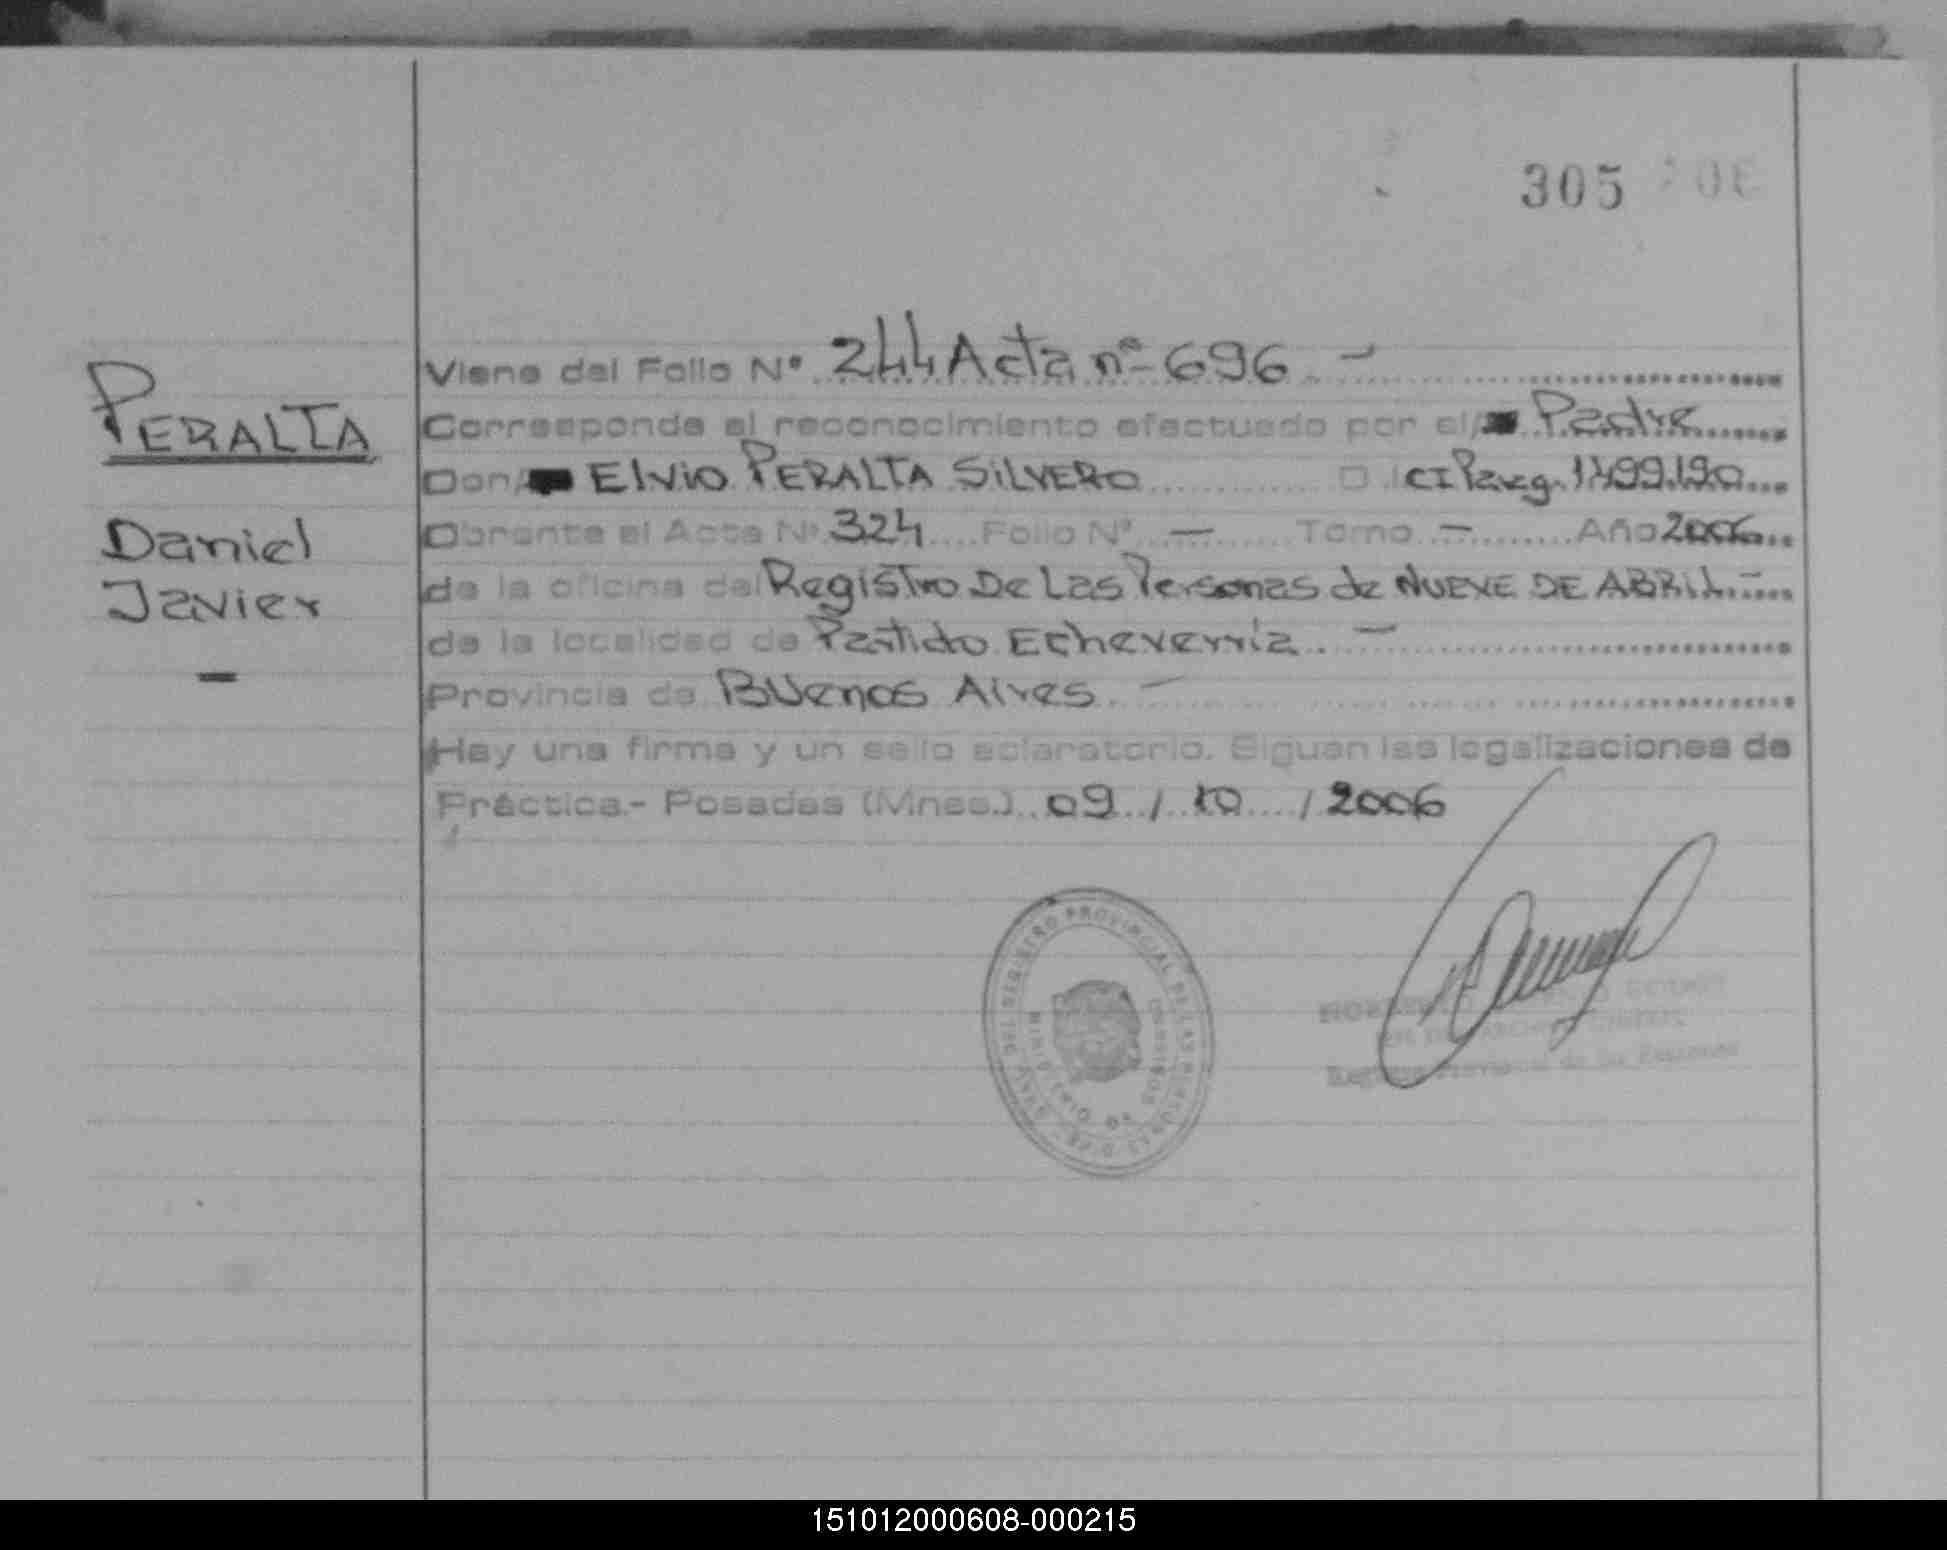 305
PERALTA
Daniel
Javier
-
Viene del Folio Nº 244 Acta nº 696 -
Corresponde al reconocimiento efectuado por el/ Padre
Don/ Elvio PERALTA SILVERO D.I. CI Parag. 1499.190
Obrante al Acta Nº 324 Folio Nº - Tomo - Año 2006
de la oficina del Registro De Las Personas de NUEVE DE ABRIL -
de la localidad de Partido Echeverría -
Provincia de Buenos Aires -
Hay una firma y un sello aclaratorio. Siguen las legalizaciones de
Práctica.- Posadas (Mnes.) 09 / 10 / 2006
REGISTRO PROVINCIAL DE LAS PERSONAS
MINISTERIO DE GOBIERNO
Registro Provincial de las Personas
151012000608-000215